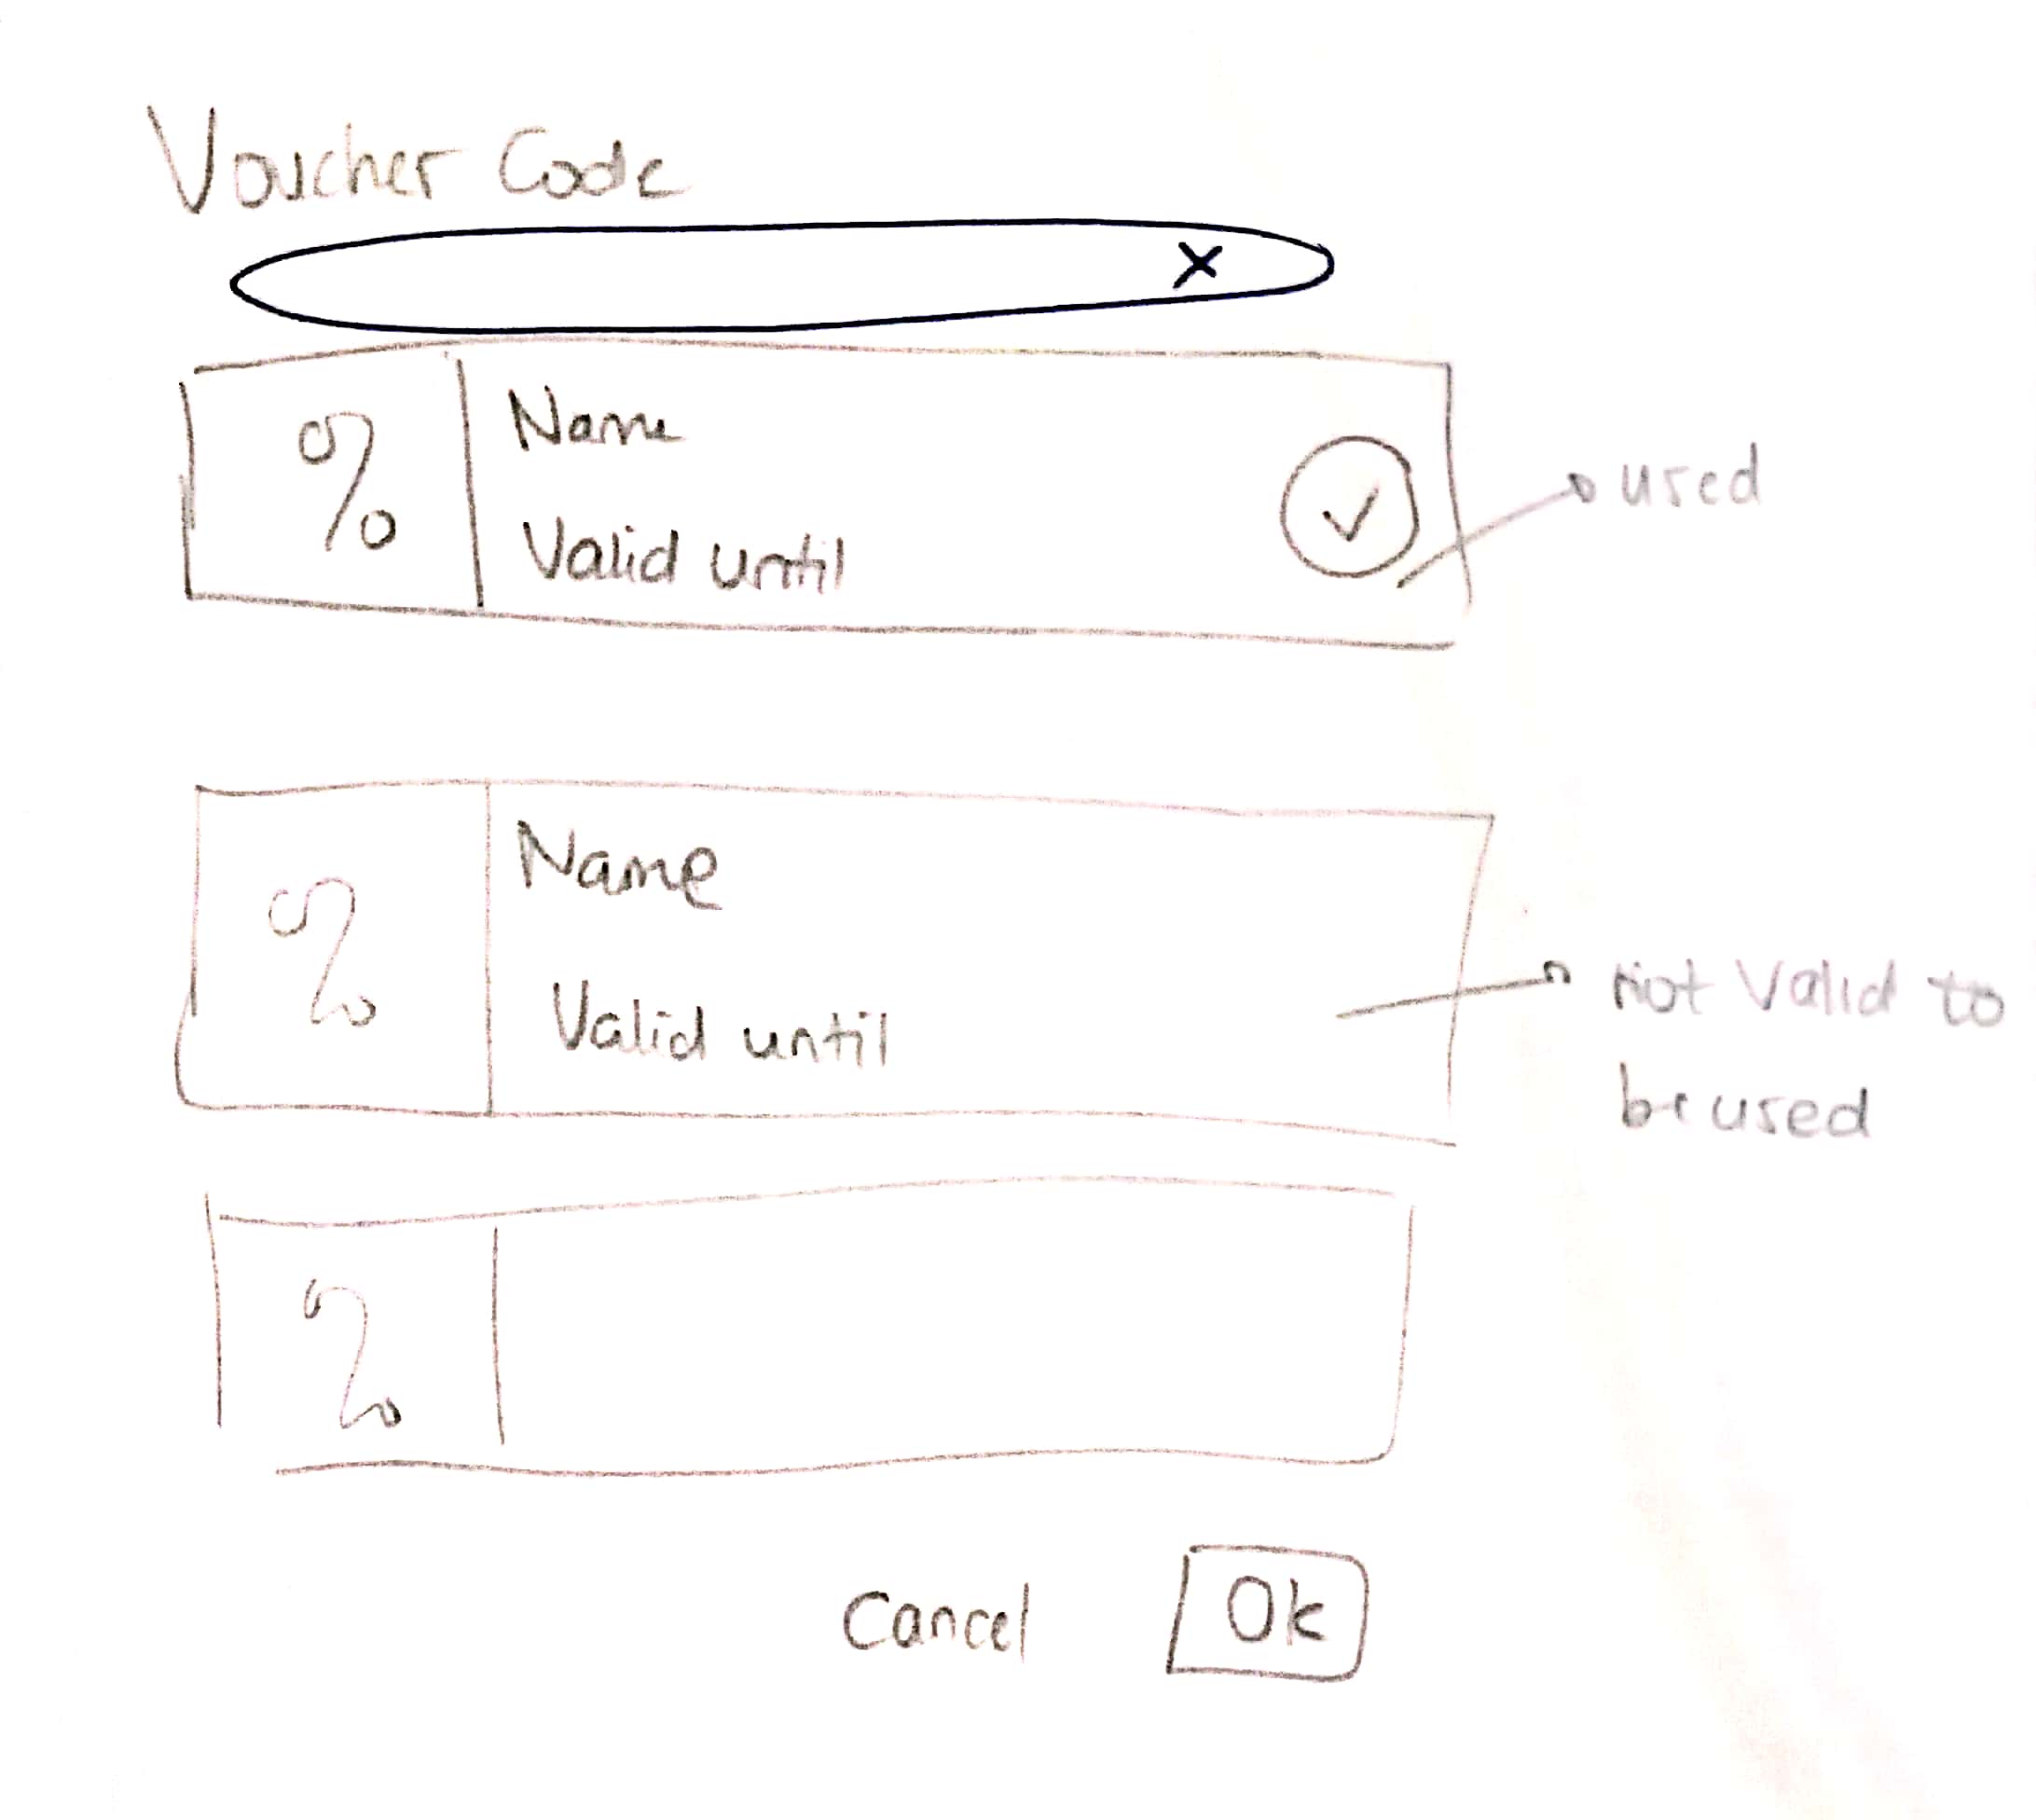 Voucher Code
X
%
Name
Valid until
✓
used
%
Name
Valid until
not Valid to
be used
%
Cancel
Ok